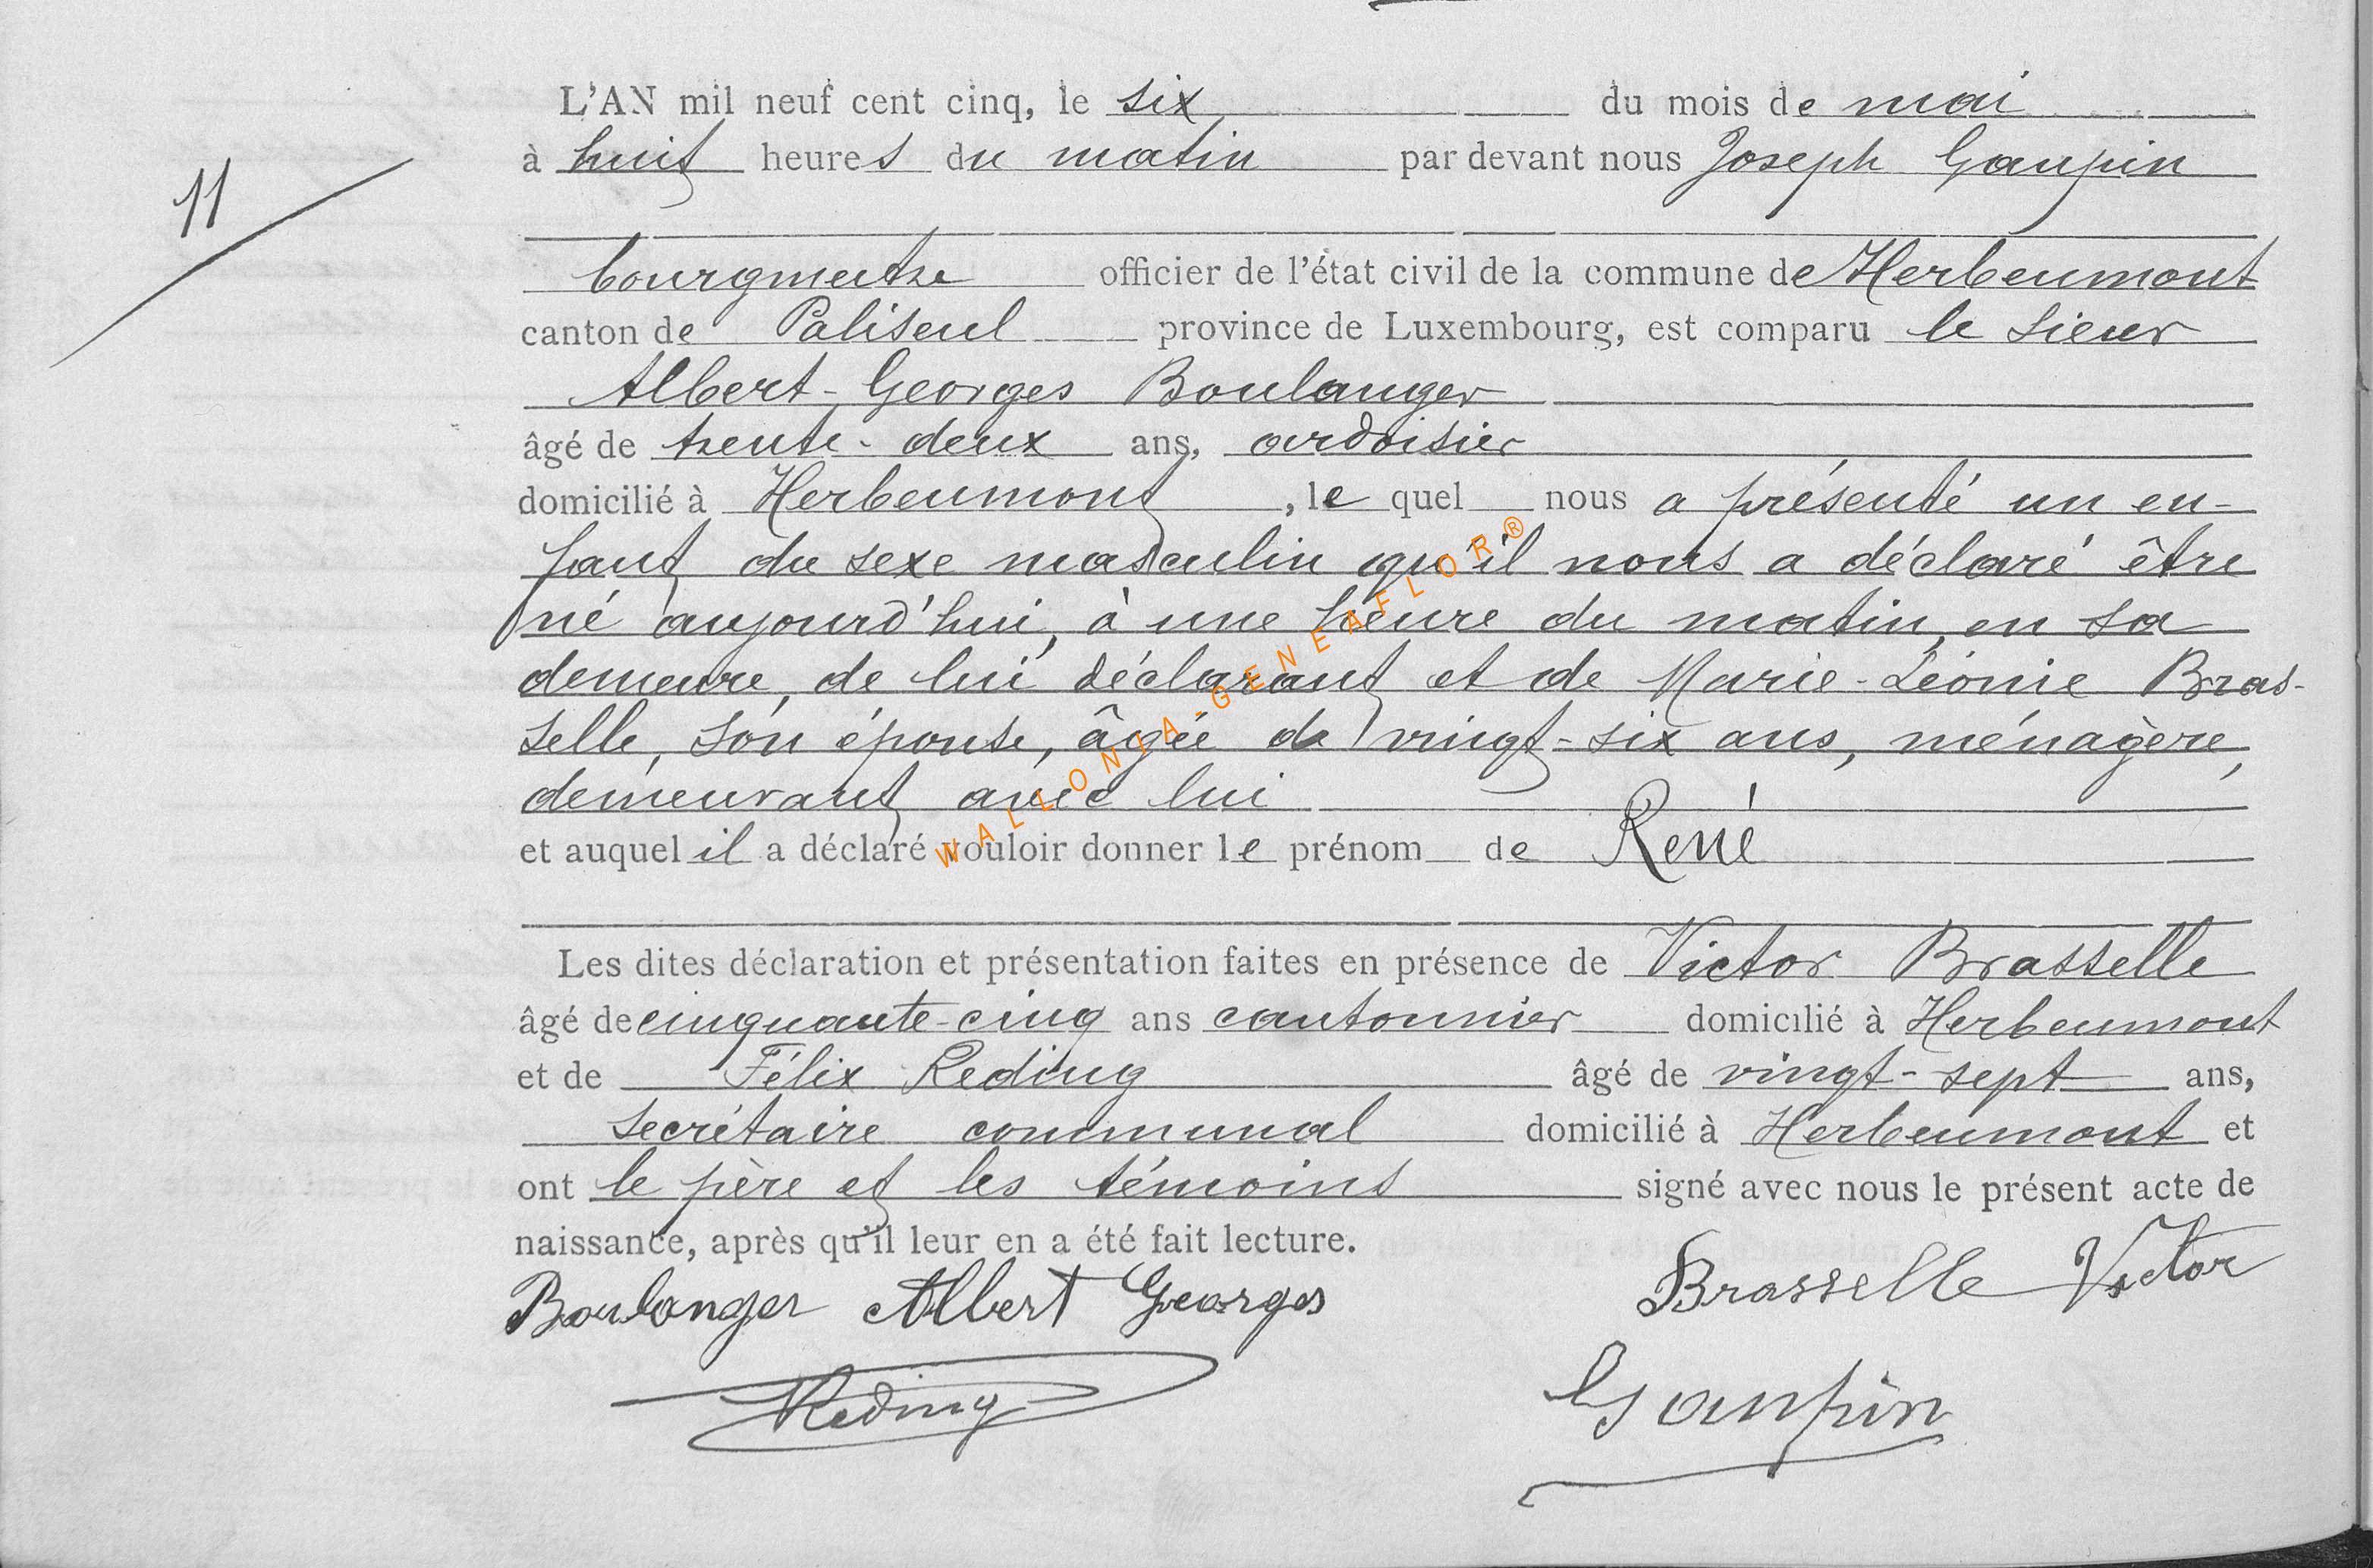 L'AN mil neuf cent cinq, le six du mois de mai
à huit heures du matin par devant nous Joseph Gaupin
11
bourgmestre officier de l'état civil de la commune de Herbeumont
canton de Paliseul province de Luxembourg, est comparu le sieur
Albert-Georges Boulanger
âgé de trente-deux ans, ardoisier
domicilié à Herbeumont, le quel nous a présenté un en-
fant du sexe masculin qu'il nous a déclaré être
né aujourd'hui, à une heure du matin, en sa
demeure, de lui déclarant et de Marie-Léonie Bras-
selle, son épouse, âgée de vingt-six ans, ménagère,
demeurant avec lui
et auquel il a déclaré vouloir donner le prénom de René
Les dites déclaration et présentation faites en présence de Victor Brasselle
âgé de cinquante-cinq ans cantonnier domicilié à Herbeumont
et de Félix Reding âgé de vingt-sept ans,
secrétaire communal domicilié à Herbeumont et
ont le père et les témoins signé avec nous le présent acte de
naissance, après qu'il leur en a été fait lecture.
Boulanger Albert Georges Brasselle Victor
Reding Gaupin
WALLONIA-GENEAFLOR®